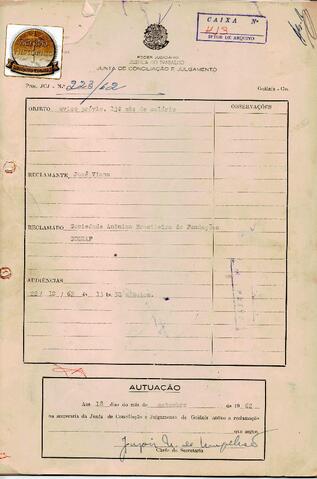 CAIXA Nº
413
SETOR DE ARQUIVO
PODER JUDICIÁRIO
JUSTIÇA DO TRABALHO
JUNTA DE CONCILIAÇÃO E JULGAMENTO
Proc. JCJ - N.º 223/62 Goiânia - Go.
OBJETO aviso prévio, 13º mês de salário OBSERVAÇÕES
RECLAMANTE José Viana
RECLAMADO Sociedade Anônima Brasileira de Fundações
SOBRAF
AUDIÊNCIAS
22/ 10/ 62 às 13 hs 30 minutos.
AUTUAÇÃO
Aos 18 dias do mês de setembro de 1962
na secretaria da Junta de Conciliação e Julgamento de Goiânia autúo a reclamação
que segue
Chefe de Secretaria